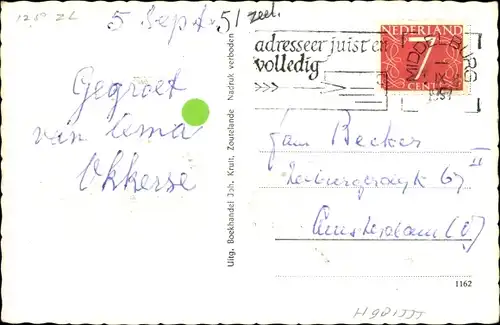 12.50 ZL
5 Sept. 51 zeel.
Gegroet
van Oma
Okkerse
Uitg. Boekhandel Joh. Kruit, Zoutelande Nadruk verboden
adresseer juist en
volledig
NEDERLAND
7
CENT
MIDDELBURG
1957
Fam Becker
Zeeburgerdyk 67 II
Amsterdam (O)
1162